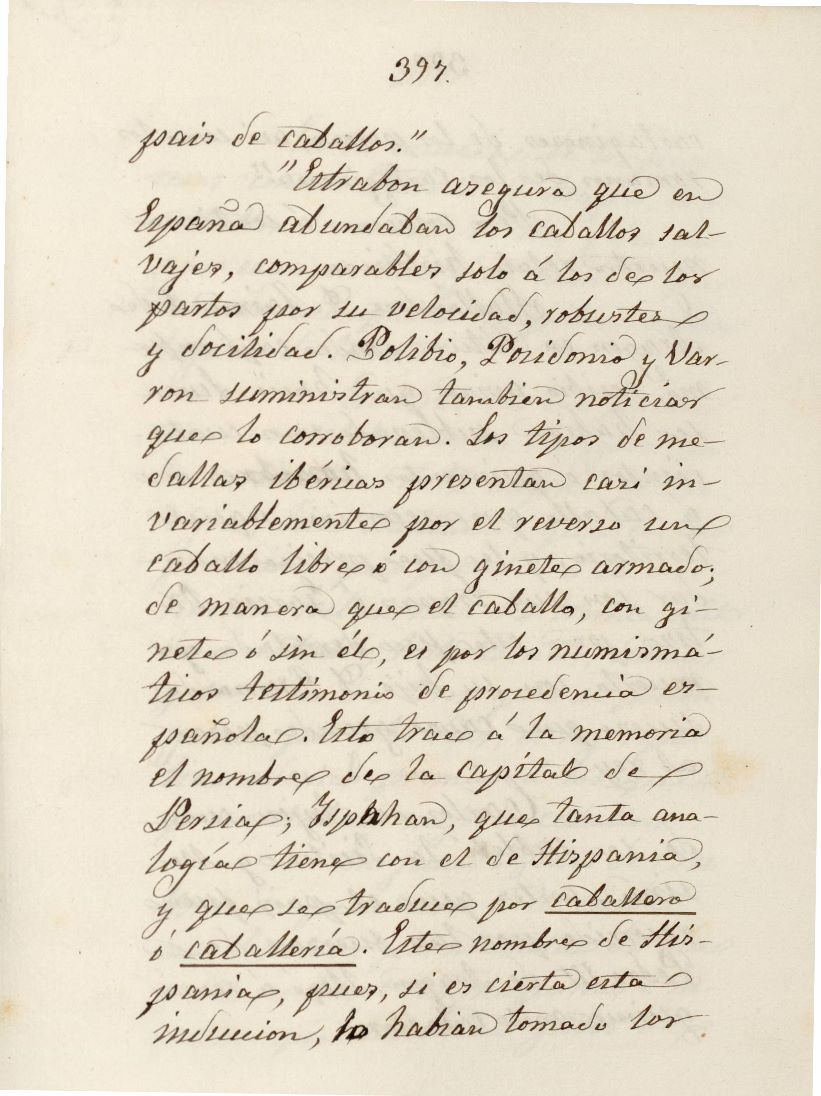 397.
pais de caballos."
"Estrabon asegura que en
España abundaban los caballos sal-
vajes, comparables solo á los de los
partos por su velocidad, robustes
y docilidad. Polibio, Posidonio y Var-
ron suministran tambien noticias
que lo corroboran. Los tipos de me-
dallas ibéricas presentan casi in-
variablemente por el reverso un
caballo libre ó con ginete armado;
de manera que el caballo, con gi-
nete ó sin él, es por los numismá-
ticos testimonio de procedencia es-
pañola. Esto trae á la memoria
el nombre de la capital de
Persia; Ysphhan, que tanta ana-
logía tiene con el de Hispania,
y que se traduce por caballero
ó caballería. Este nombre de His-
pania, pues, si es cierta esta
induccion, lo habian tomado los